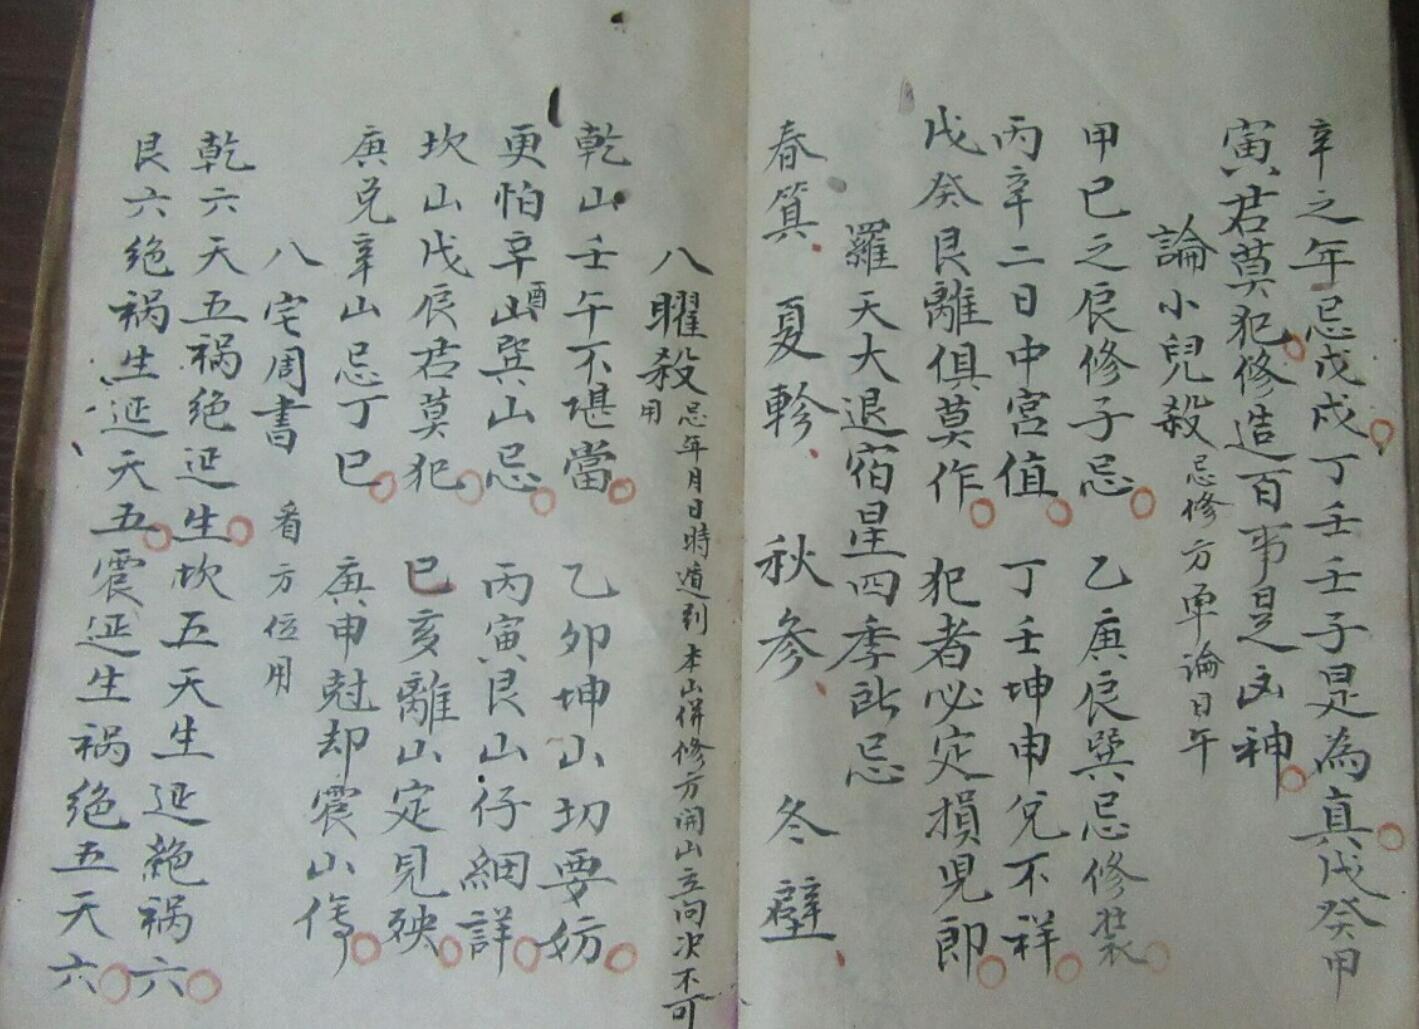 辛之年忌戊戌丁壬壬子是為真戊癸甲
寅君莫犯修造百事是凶神
論小兒殺忌修方單論日午
甲已之辰修子忌 乙庚辰巽忌修裝
丙辛二日中宮值 丁壬坤申兌不祥
戊癸艮離俱莫作 犯者必定損児郎
羅天大退宿星四季所忌
春箕 夏軫 秋參 冬壁
八曜殺忌年月日時遁到本山併修方開山立向决不可
用
乾山壬午不堪當 乙卯坤山切要妨
更怕辛酉山巽山忌 丙寅艮山仔細詳
坎山戊辰君莫犯 已亥離山定見殃
庚兌辛山忌丁巳 庚申尅却震山傷
八宅周書 看方位用
乾六天五祸絶延生坎五天生延絶祸六
艮六絶祸生延天五震延生祸絶五天六